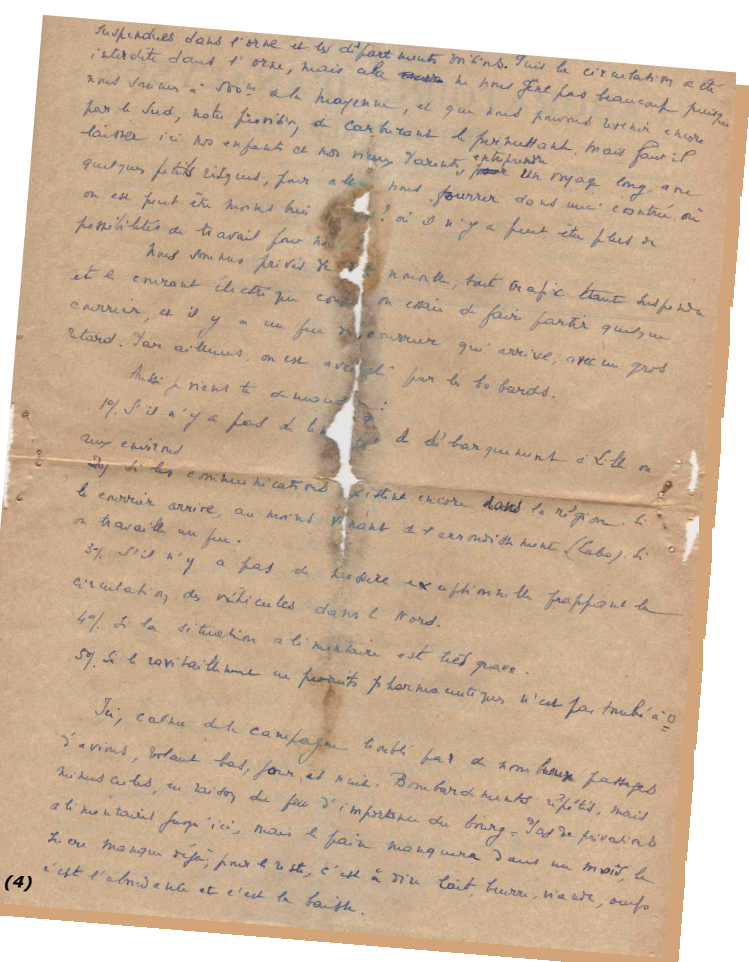 suspendues dans l'orne et les départements voisins. Puis la circulation a été
interdite dans l'orne, mais cela ne nous gêne pas beaucoup puisque
nous sommes à 500m de la Mayenne, et que nous pouvons revenir encore
par le Sud, notre provision de carburant le permettant. Mais faut-il
laisser ici nos enfants et nos vieux Parents, entreprendre un voyage long, avec
quelques petits risques, pour aller nous fourrer dans une contrée où
on est peut être moins bien ? où il n'y a peut être plus de
possibilités de travail pour nous
Nous sommes privés de nouvelle, tout trafic étant suspendu
et le courant électrique coupé on essaie de faire partir quelque
courrier, et il y a un peu de courrier qui arrive, avec un gros
retard. Par ailleurs, on est aveuglé par les bobards.
Aussi je viens te demander :
1°/. S'il n'y a pas de de débarquement à Lille ou
aux environs
2°/ Si les communications existent encore dans la région. Si
le courrier arrive, au moins venant de l'arrondissement (labo). Si
on travaille un peu.
3°/. S'il n'y a pas de mesure exceptionnelle frappant la
circulation des véhicules dans le Nord.
4°/. Si la situation alimentaire est très grave.
5°/. Si le ravitaillement en produits pharmaceutiques n'est pas tombé à 0
Ici, calme de la campagne troublé par de nombreux passages
d'avions, volant bas, jour et nuit. Bombardements répétés, mais
minuscules, en raison du peu d'importance du bourg. Pas de privations
alimentaires jusqu'ici, mais le pain manquera dans un mois, le
sucre manque déjà; pour le reste, c'est à dire lait, beurre, viande, oeufs
c'est l'abondance et c'est la baisse.
(4)